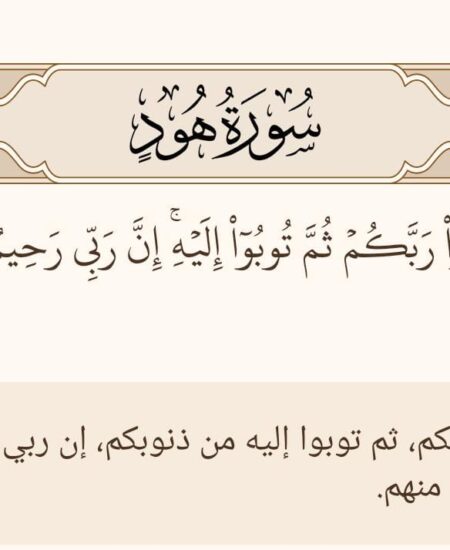 سُورَةُ هُودٍ
رَبَّكُمۡ ثُمَّ تُوبُوٓاْ إِلَيۡهِۚ إِنَّ رَبِّي
ثم توبوا إليه من ذنوبكم، إن ربي
منهم.